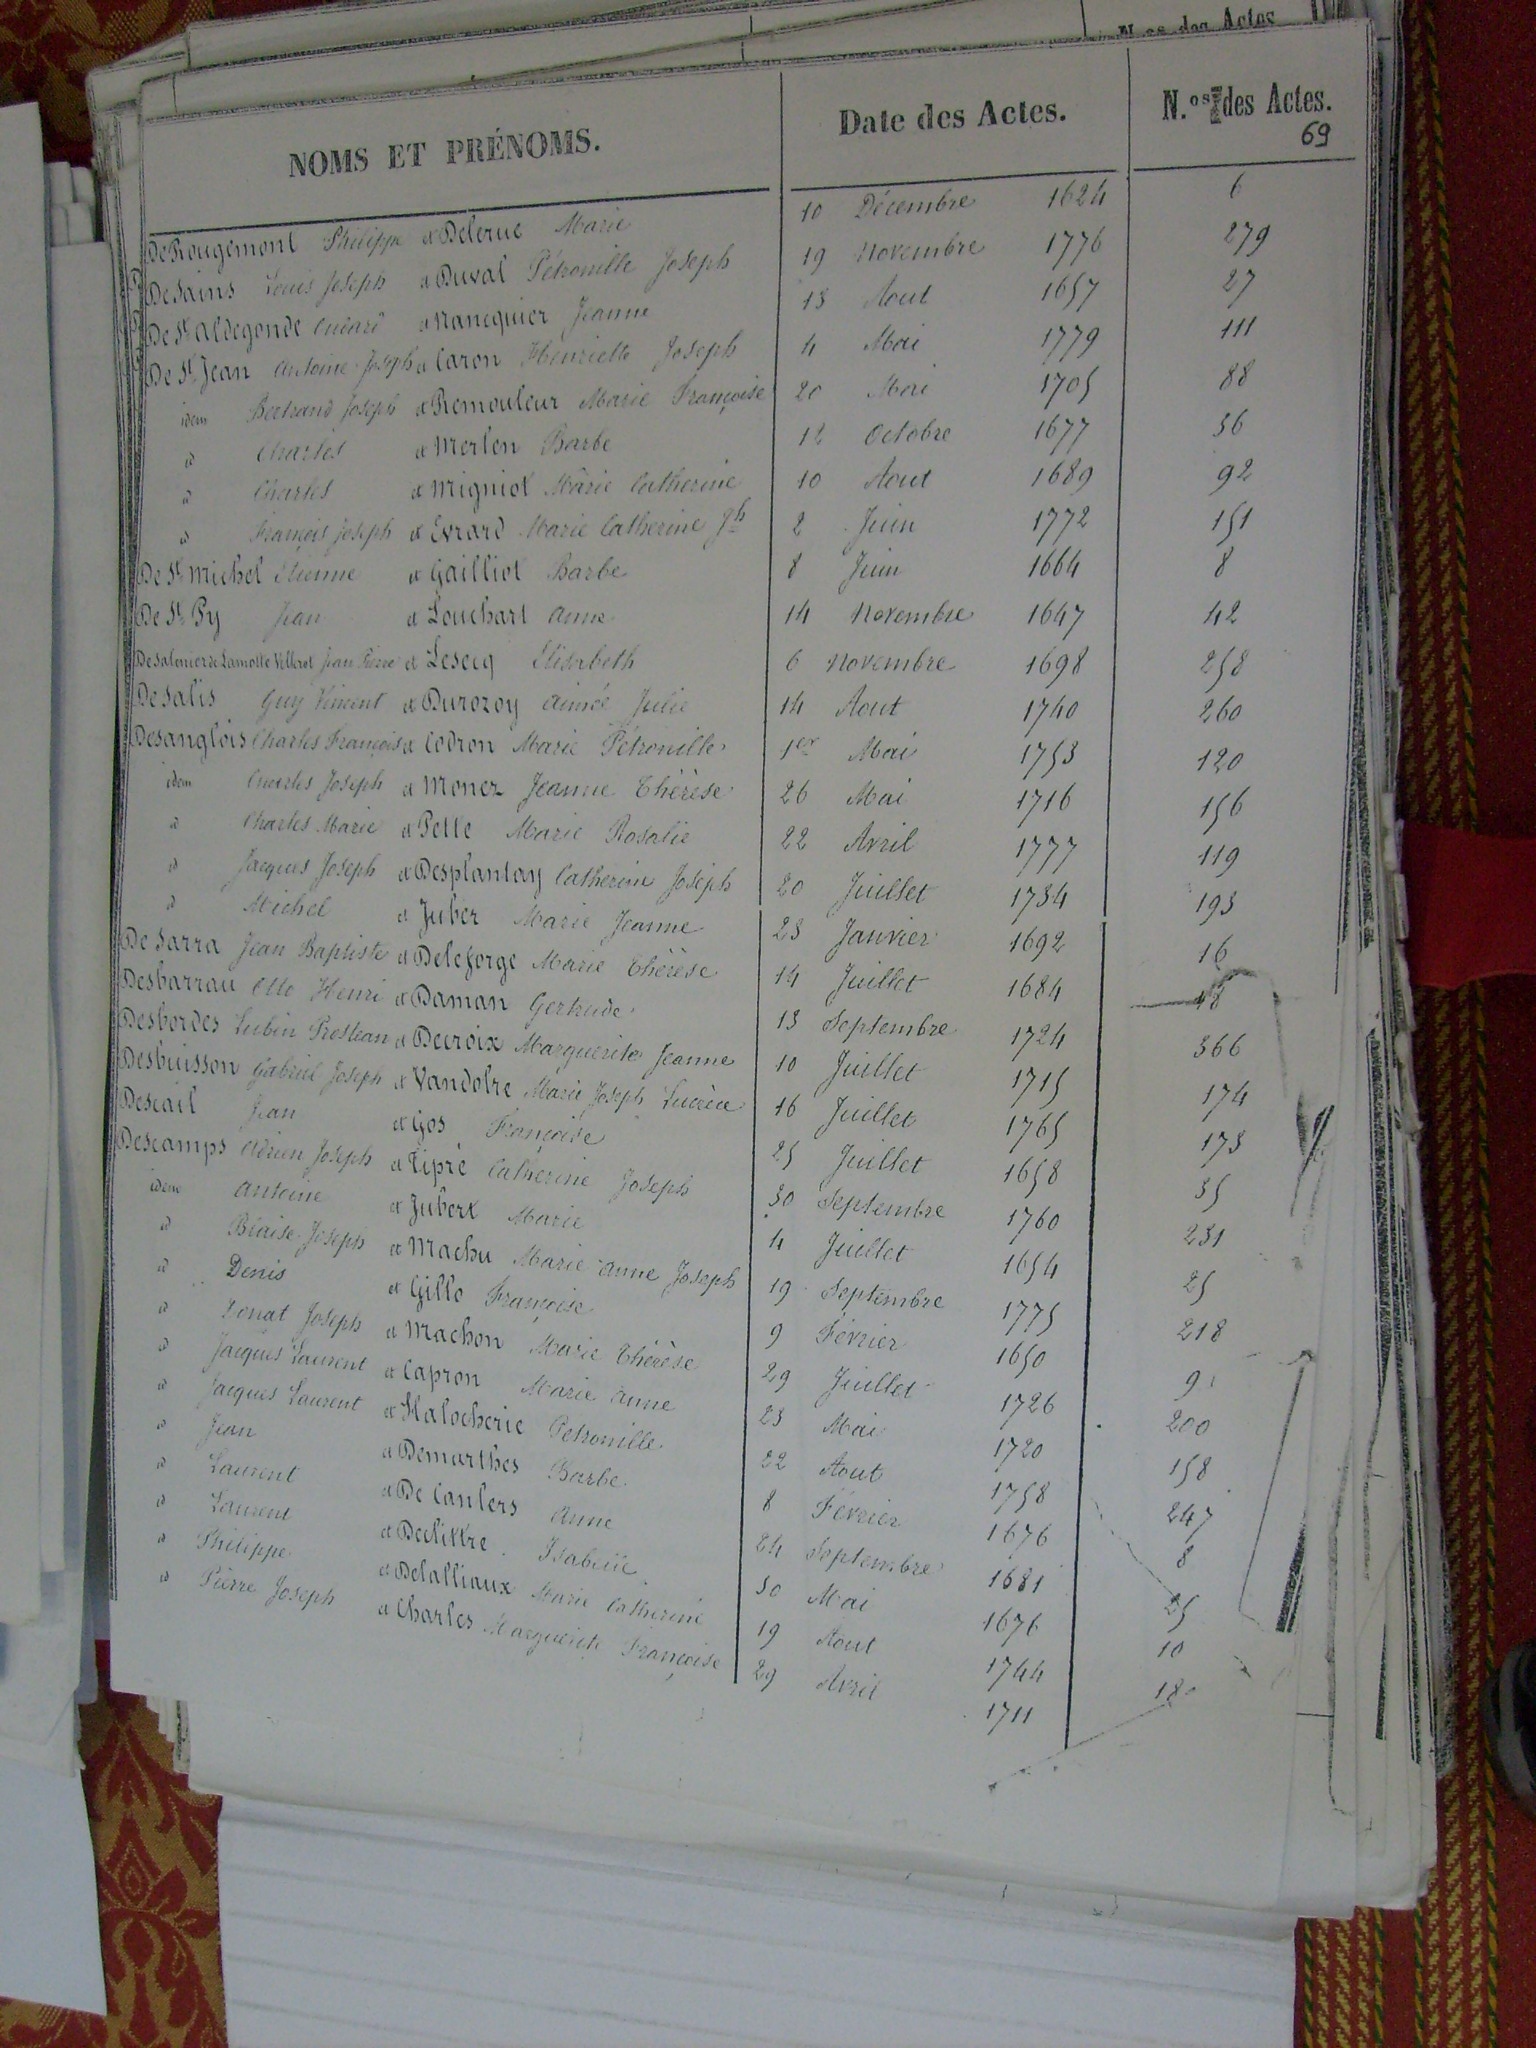 N.os des Actes
NOMS ET PRÉNOMS. Date des Actes. N.os des Actes.
69
De Rougemont Philippe et Delerue Marie 10 Décembre 1624 6
De Sains Louis Joseph et Duval Pétronille Joseph 19 Novembre 1776 279
De St Aldegonde et Nancquier Jeanne 13 Aout 1657 27
De St Jean Antoine Joseph et Caron Henriette Joseph 4 Mai 1779 111
idem Bertrand Joseph et Remouleur Marie Françoise 20 Mai 1705 88
id Charles et Merlen Barbe 12 Octobre 1677 36
id Charles et Migniot Marie Catherine 10 Aout 1689 92
id François Joseph et Evrard Marie Catherine Jh 2 Juin 1772 151
De St Michel Etienne et Gailliot Barbe 8 Juin 1664 8
De St Py Jean et Louchart Anne 14 Novembre 1647 42
Desalenier de Lamotte Villerot Jean Pierre et Lesecq Elisabeth 6 Novembre 1698 258
De Salis Guy Vincent et Durozoy Aimée Julie 14 Aout 1740 260
Desanglois Charles François et Codron Marie Pétronille 1er Mai 1753 120
idem Charles Joseph et Monez Jeanne Thérèse 26 Mai 1716 156
id Charles Marie et Pette Marie Rosalie 22 Avril 1777 119
id Jacques Joseph et Desplantay Catherine Joseph 20 Juillet 1734 193
id Michel et Juber Marie Jeanne 23 Janvier 1692 16
De Sarra Jean Baptiste et Deleforge Marie Thérèse 14 Juillet 1684 48
Desbarrau Otto Henri et Daman Gertrude 13 Septembre 1724 366
Desbordes Lubin et Decroix Marguerite Jeanne 10 Juillet 1715 174
Desbuisson Gabriel Joseph et Vandolre Marie Joseph Lucrèce 16 Juillet 1765 173
Descail Jean et Gos Françoise 25 Juillet 1658 35
Descamps Adrien Joseph et Tipré Catherine Joseph 30 Septembre 1760 231
idem Antoine et Jubert Marie 4 Juillet 1654 25
id Blaise Joseph et Machu Marie Anne Joseph 19 Septembre 1775 218
id Denis et Gillo Françoise 9 Février 1650 9
id Donat Joseph et Machon Marie Thérèse 29 Juillet 1726 200
id Jacques Laurent et Capron Marie Anne 23 Mai 1720 158
id Jacques Laurent et Halocherie Petronille 22 Aout 1758 247
id Jean et Demarthes Barbe 8 Février 1676 8
id Laurent et De Canlers Anne 24 Septembre 1681 25
id Laurent et Declittre Isabelle 30 Mai 1676 10
id Philippe et Delalliaux Marie Catherine 19 Aout 1744 180
id Pierre Joseph et Charles Marguerite Françoise 29 Avril 1711